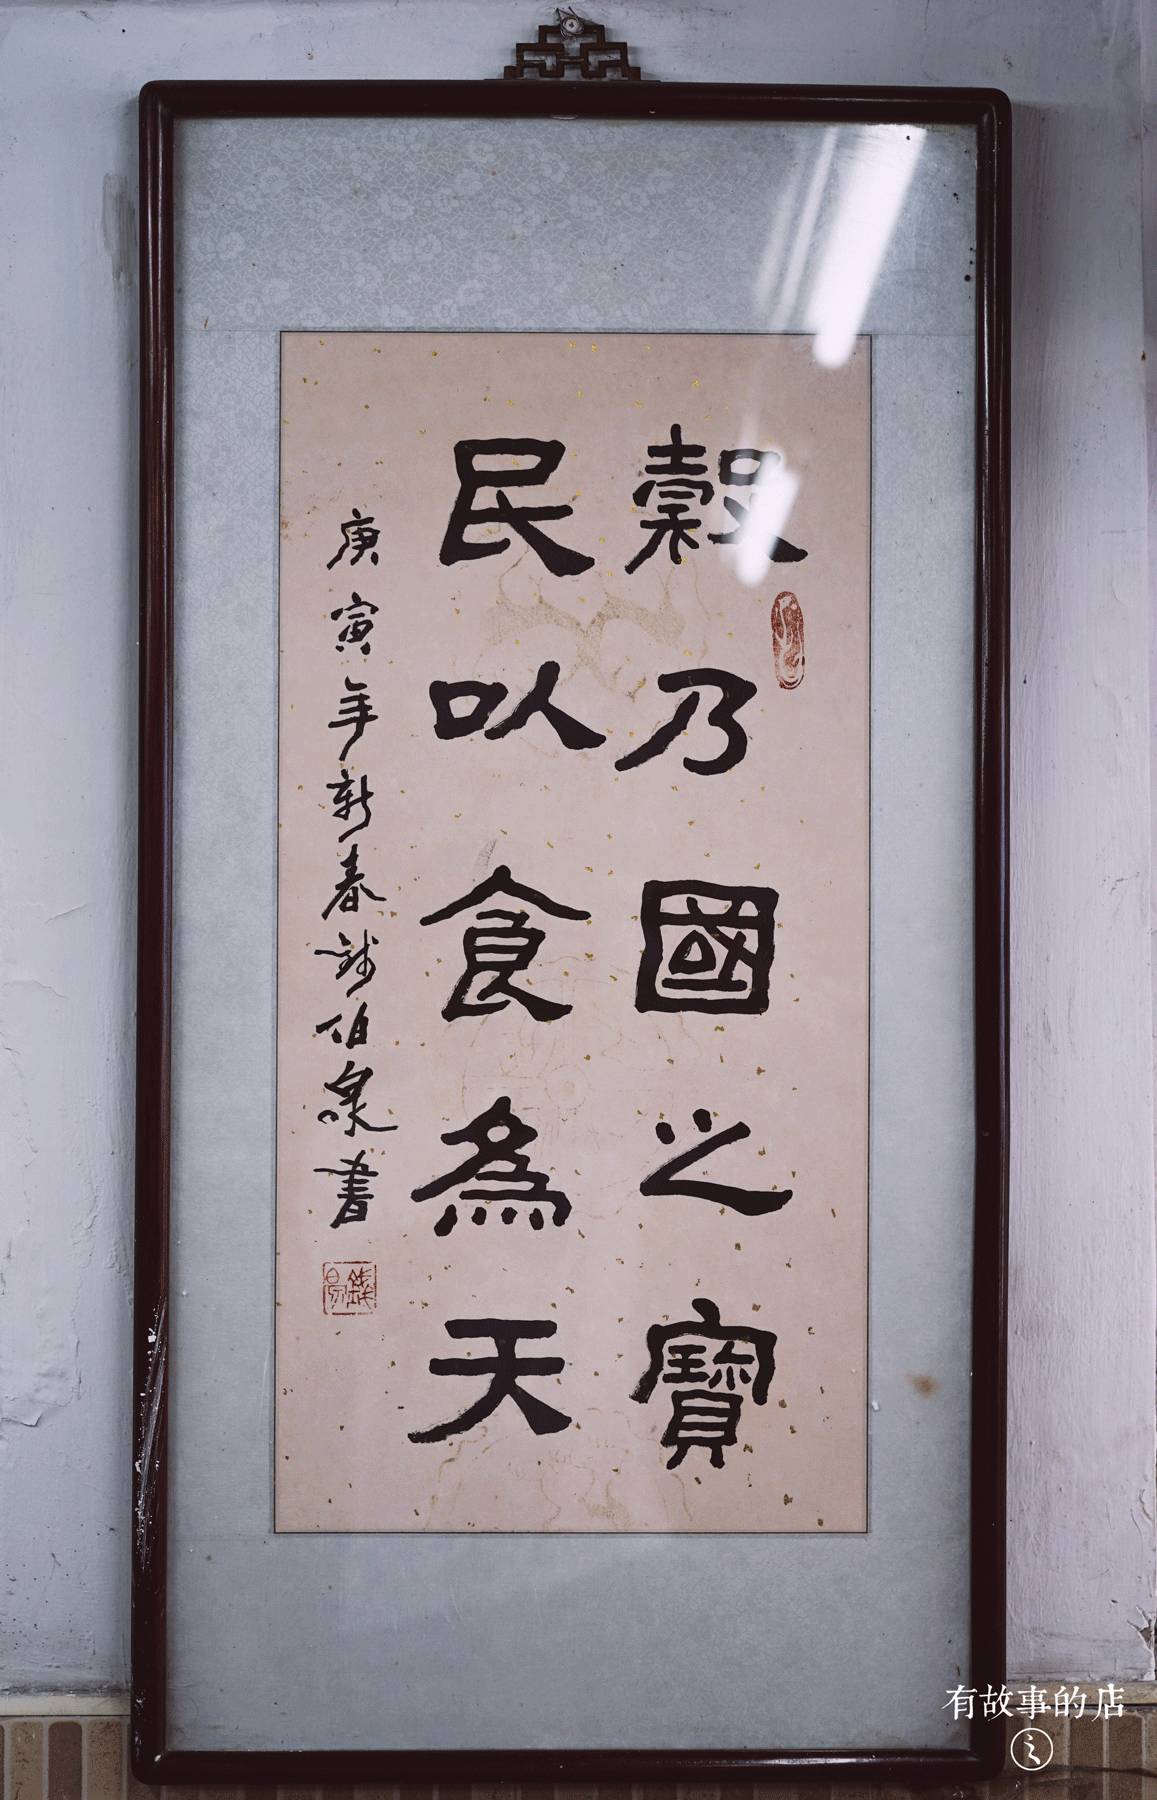 穀乃國之寶
民以食為天
庚寅年新春錢伯泉書
有故事的店